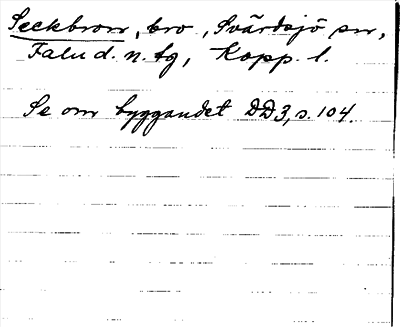 Seckbron, bro, Svärdsjö sn,
Falu d. n. tg, Kopp. l.
Se om byggandet DD3, s. 104.